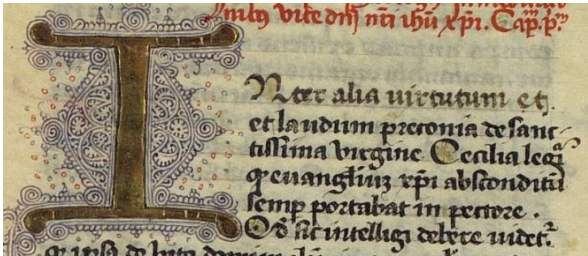 mitus vite dñi nr̃i ihũ xpi. Capp. pm̃.
INter alia virtutum et
et laudum preconia de sanc-
tissima virgine Cecilia legr̃
qr̃ evanglium xpi absconditũ
semp portabat in pectore.
Qd̃ sic intelligi debere videtr̃.